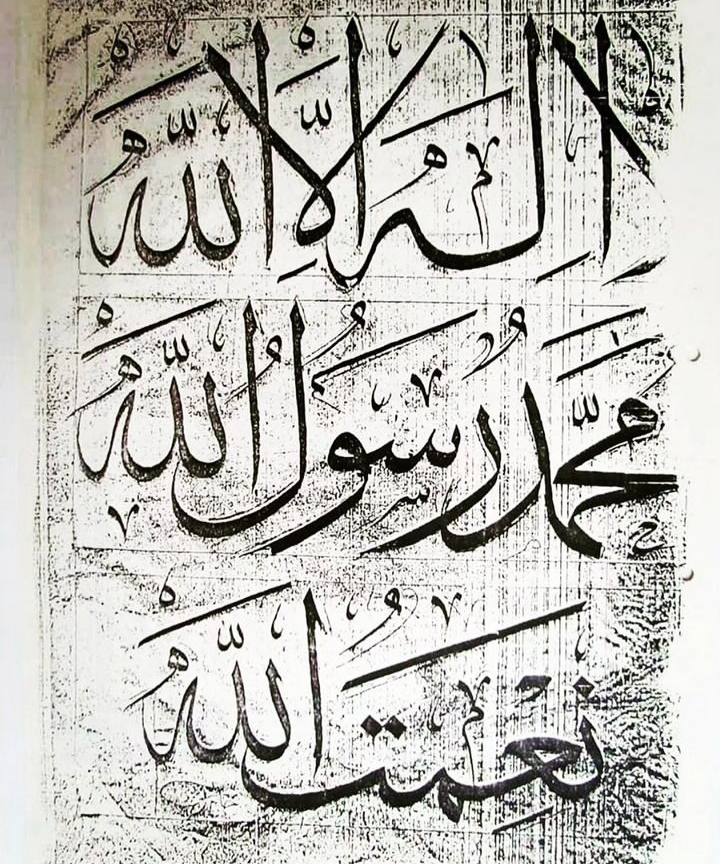 لَا إِلٰهَ إِلَّا اللّٰهُ
مُحَمَّدٌ رَسُولُ اللّٰهِ
نِعْمَتُ اللّٰهِ